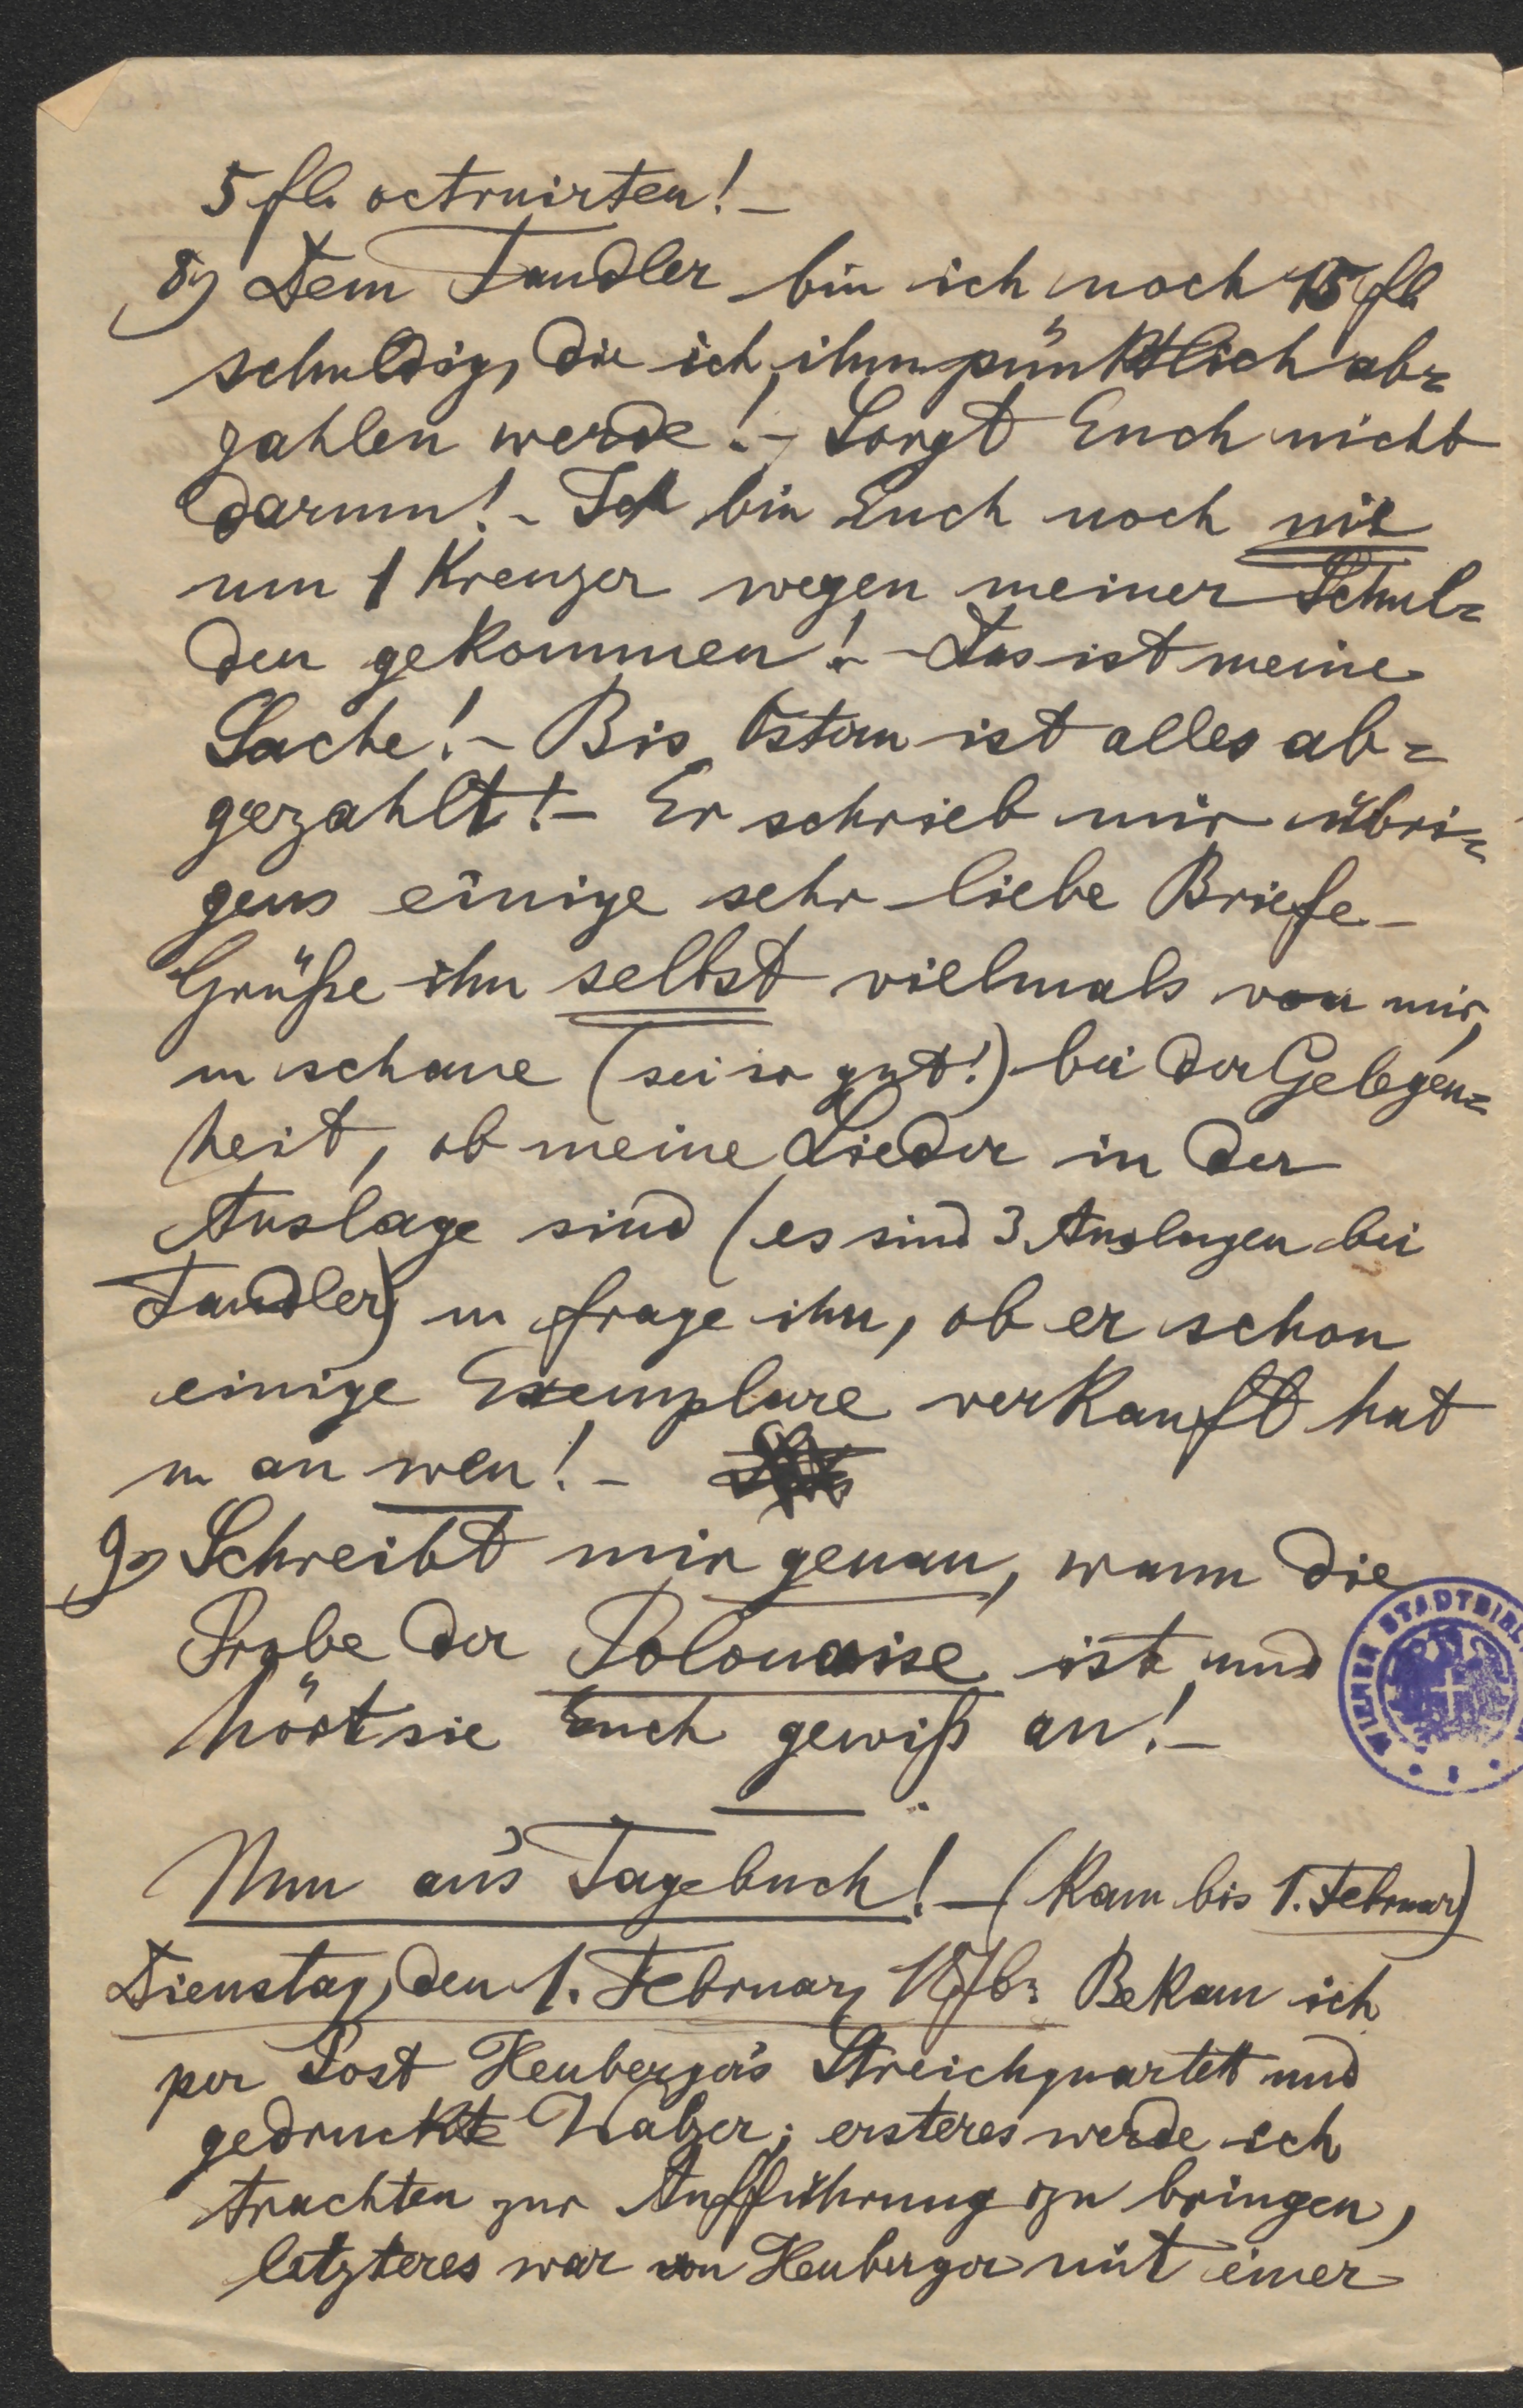 5 fl. octruirten! –
8) Dem Tandler bin ich noch 15 fl
schuldig, die ich ihm pünktlich ab=
zahlen werde! – Sorgt Euch nicht
darum! – Ich bin Euch noch nie
um 1 Kreuzer wegen meiner Schul=
den gekommen! – Das ist meine
Sache! – Bis Ostern ist alles ab=
gezahlt! – Er schrieb mir übri=
gens einige sehr liebe Briefe –
Grüße ihn selbst vielmals von mir,
u schaue (sei so gut!) bei der Gelegen=
heit, ob meine Lieder in der
Auslage sind (es sind 3 Auslagen bei
Tandler) u frage ihn, ob er schon
einige Exemplare verkauft hat
u an wen! –
9) Schreibt mir genau, wann die
Probe der Polonaise ist und
hört sie Euch gewiß an! –
Nun an's Tagebuch! – (kam bis 1. Februar)
Dienstag, den 1. Februar 1876: Bekam ich
per Post Heuberger's Streichquartett und
gedruckte Walzer; ersteres werde ich
trachten zur Aufführung zu bringen,
letzteres war von Heuberger mit einer
WIENER STADTBIBL